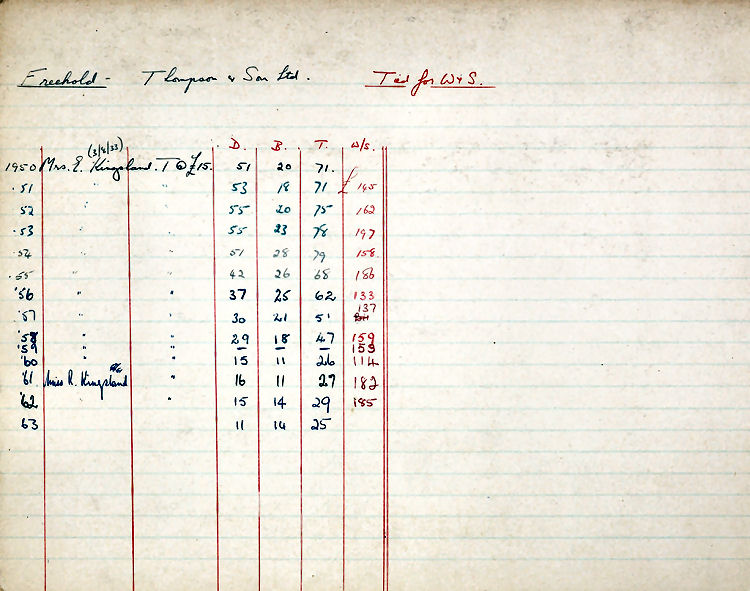 Freehold - Thompson & Son Ltd. Tied for W & S.
D. B. T. W/S.
(3/8/33)
1950 Mrs. E. Kingsland. T @ £15. 51 20 71.
'51 " " 53 18 71 £ 165
52 " " 55 20 75 162
'53 " " 55 23 78 197
'54 " " 51 28 79 158
'55 " " 42 26 68 186
'56 " " 37 25 62 133
'57 " " 30 21 51 137
'58 " " 29 18 47 159
'59 " " - - - 153
'60 " " 15 11 26 114
'61 Miss R. Kingsland " 16 11 27 182
'62 " 15 14 29 185
63 11 14 25